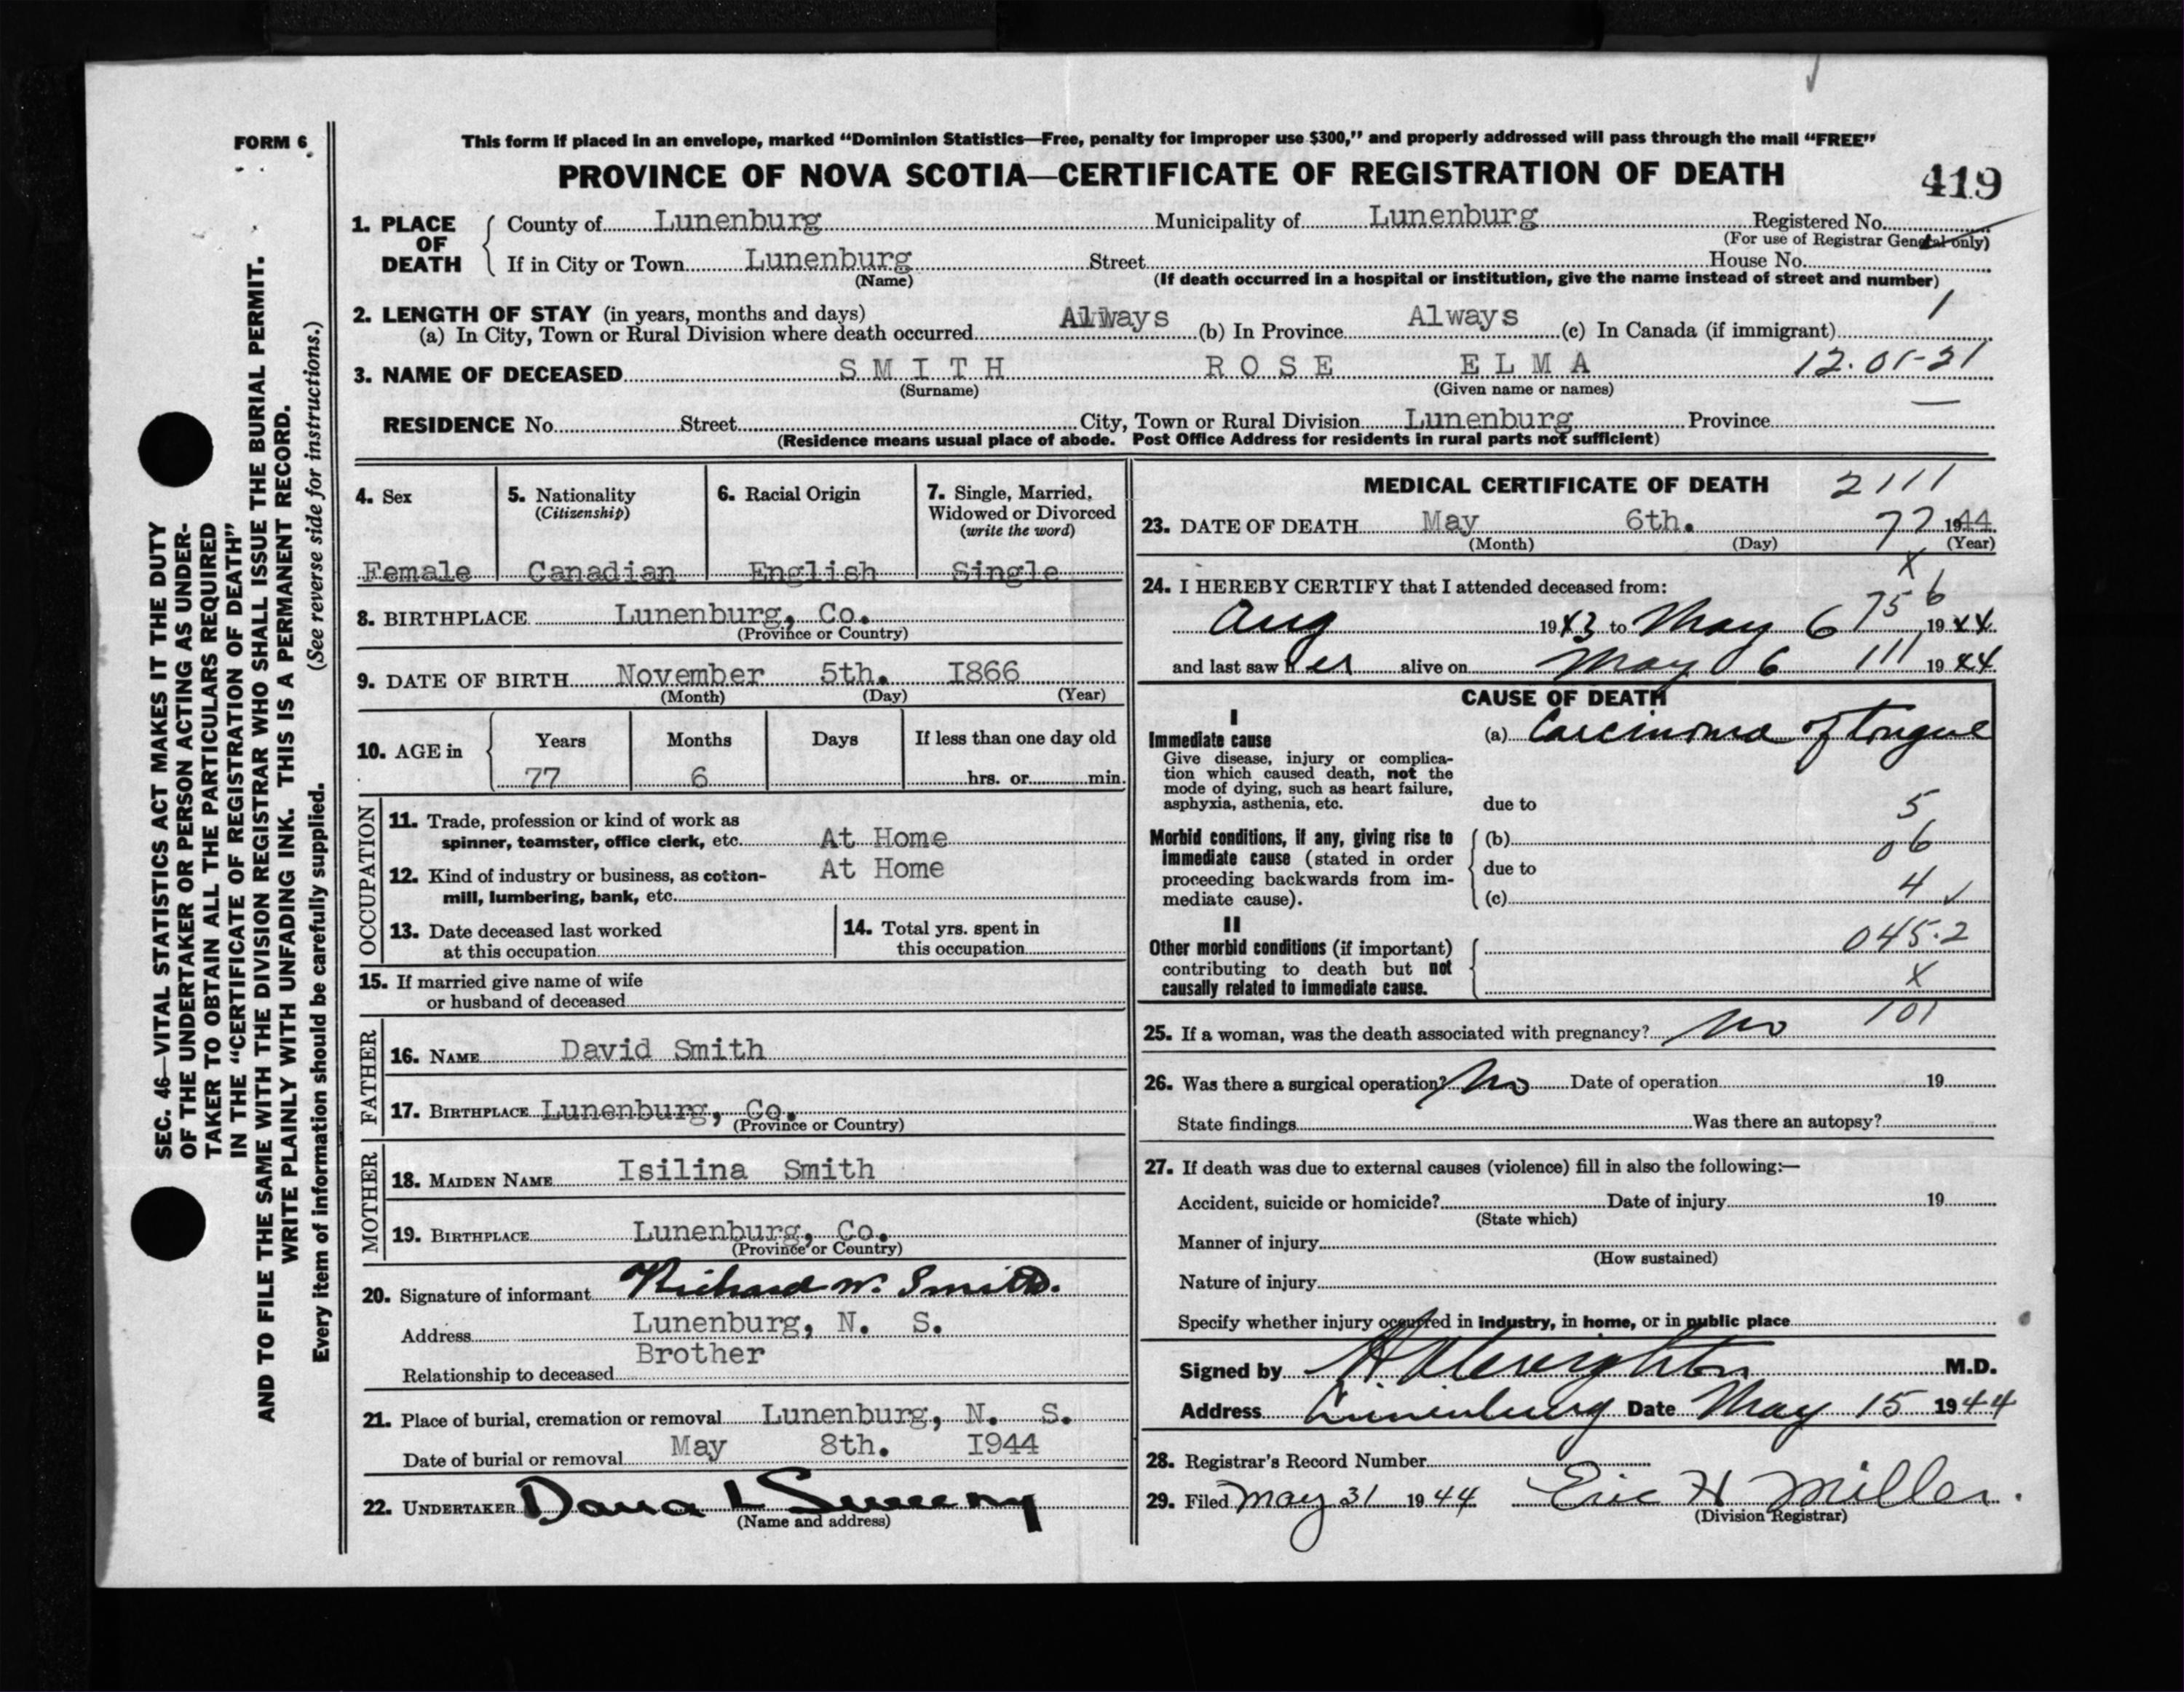 FORM 6
This form if placed in an envelope, marked “Dominion Statistics—Free, penalty for improper use $300,” and properly addressed will pass through the mail “FREE”
PROVINCE OF NOVA SCOTIA—CERTIFICATE OF REGISTRATION OF DEATH
419
1. PLACE OF DEATH { County of Lunenburg Municipality of Lunenburg Registered No.
(For use of Registrar General only)
If in City or Town Lunenburg Street House No.
(Name) (If death occurred in a hospital or institution, give the name instead of street and number)
2. LENGTH OF STAY (in years, months and days) 1
(a) In City, Town or Rural Division where death occurred Always (b) In Province Always (c) In Canada (if immigrant)
3. NAME OF DECEASED SMITH ROSE ELMA 12.01-21
(Surname) (Given name or names)
RESIDENCE No. Street City, Town or Rural Division Lunenburg Province
(Residence means usual place of abode. Post Office Address for residents in rural parts not sufficient)
SEC. 46—VITAL STATISTICS ACT MAKES IT THE DUTY
OF THE UNDERTAKER OR PERSON ACTING AS UNDER-
TAKER TO OBTAIN ALL THE PARTICULARS REQUIRED
IN THE “CERTIFICATE OF REGISTRATION OF DEATH”
AND TO FILE THE SAME WITH THE DIVISION REGISTRAR WHO SHALL ISSUE THE BURIAL PERMIT.
WRITE PLAINLY WITH UNFADING INK. THIS IS A PERMANENT RECORD.
Every item of information should be carefully supplied. (See reverse side for instructions.)
4. Sex 5. Nationality 6. Racial Origin 7. Single, Married,
(Citizenship) Widowed or Divorced
(write the word)
Female Canadian English Single
8. BIRTHPLACE Lunenburg, Co.
(Province or Country)
9. DATE OF BIRTH November 5th. 1866
(Month) (Day) (Year)
10. AGE in { Years Months Days If less than one day old
77 6 hrs. or min.
OCCUPATION
11. Trade, profession or kind of work as
spinner, teamster, office clerk, etc. At Home
12. Kind of industry or business, as cotton- At Home
mill, lumbering, bank, etc.
13. Date deceased last worked 14. Total yrs. spent in
at this occupation this occupation
15. If married give name of wife
or husband of deceased
FATHER
16. NAME David Smith
17. BIRTHPLACE Lunenburg, Co.
(Province or Country)
MOTHER
18. MAIDEN NAME Isilina Smith
19. BIRTHPLACE Lunenburg, Co.
(Province or Country)
20. Signature of informant Richard W. Smith.
Address Lunenburg, N. S.
Relationship to deceased Brother
21. Place of burial, cremation or removal Lunenburg, N. S.
Date of burial or removal May 8th. 1944
22. UNDERTAKER Dana L Sweeny
(Name and address)
MEDICAL CERTIFICATE OF DEATH 2111
23. DATE OF DEATH May 6th. 77 1944
(Month) (Day) (Year)
x
24. I HEREBY CERTIFY that I attended deceased from:
756
Aug 1943 to May 6 1944
and last saw her alive on May 6 111 1944
CAUSE OF DEATH
I
Immediate cause (a) Carcinoma of tongue
Give disease, injury or complica-
tion which caused death, not the
mode of dying, such as heart failure,
asphyxia, asthenia, etc. due to 5
Morbid conditions, if any, giving rise to (b) 06
immediate cause (stated in order
proceeding backwards from im- due to 4 ✓
mediate cause). (c)
II
Other morbid conditions (if important) 045.2
contributing to death but not
causally related to immediate cause. x
101
25. If a woman, was the death associated with pregnancy? No
26. Was there a surgical operation? No Date of operation 19
State findings Was there an autopsy?
27. If death was due to external causes (violence) fill in also the following:—
Accident, suicide or homicide? Date of injury 19
(State which)
Manner of injury
(How sustained)
Nature of injury
Specify whether injury occurred in industry, in home, or in public place
Signed by M.D.
Address Lunenburg Date May 15 1944
28. Registrar's Record Number
29. Filed May 31 1944 Eric H Miller.
(Division Registrar)